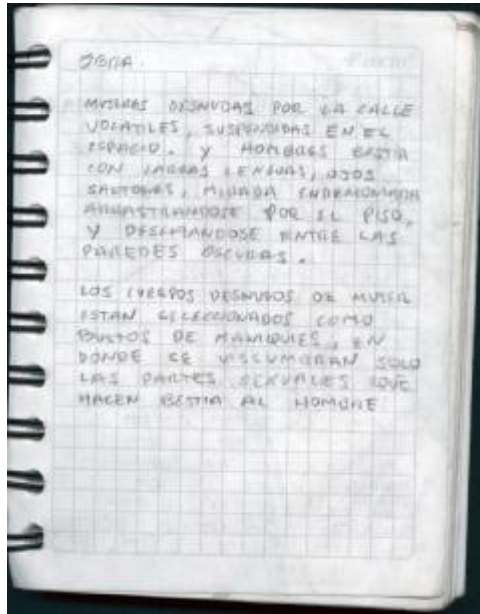 MUJERES DESNUDAS POR LA CALLE
VOLATILES, SUSPENDIDAS EN EL
ESPACIO. Y HOMBRES BESTIA
CON LARGAS LENGUAS, OJOS
SALTONES, MIRADA ENDEMONIADA
ARRASTRANDOSE POR EL PISO,
Y DESLIZANDOSE ENTRE LAS
PAREDES OSCURAS.
LOS CUERPOS DESNUDOS DE MUJER
ESTAN SELECCIONADOS COMO
BUSTOS DE MANIQUIES, EN
DONDE SE VISLUMBRAN SOLO
LAS PARTES SEXUALES QUE
HACEN BESTIA AL HOMBRE